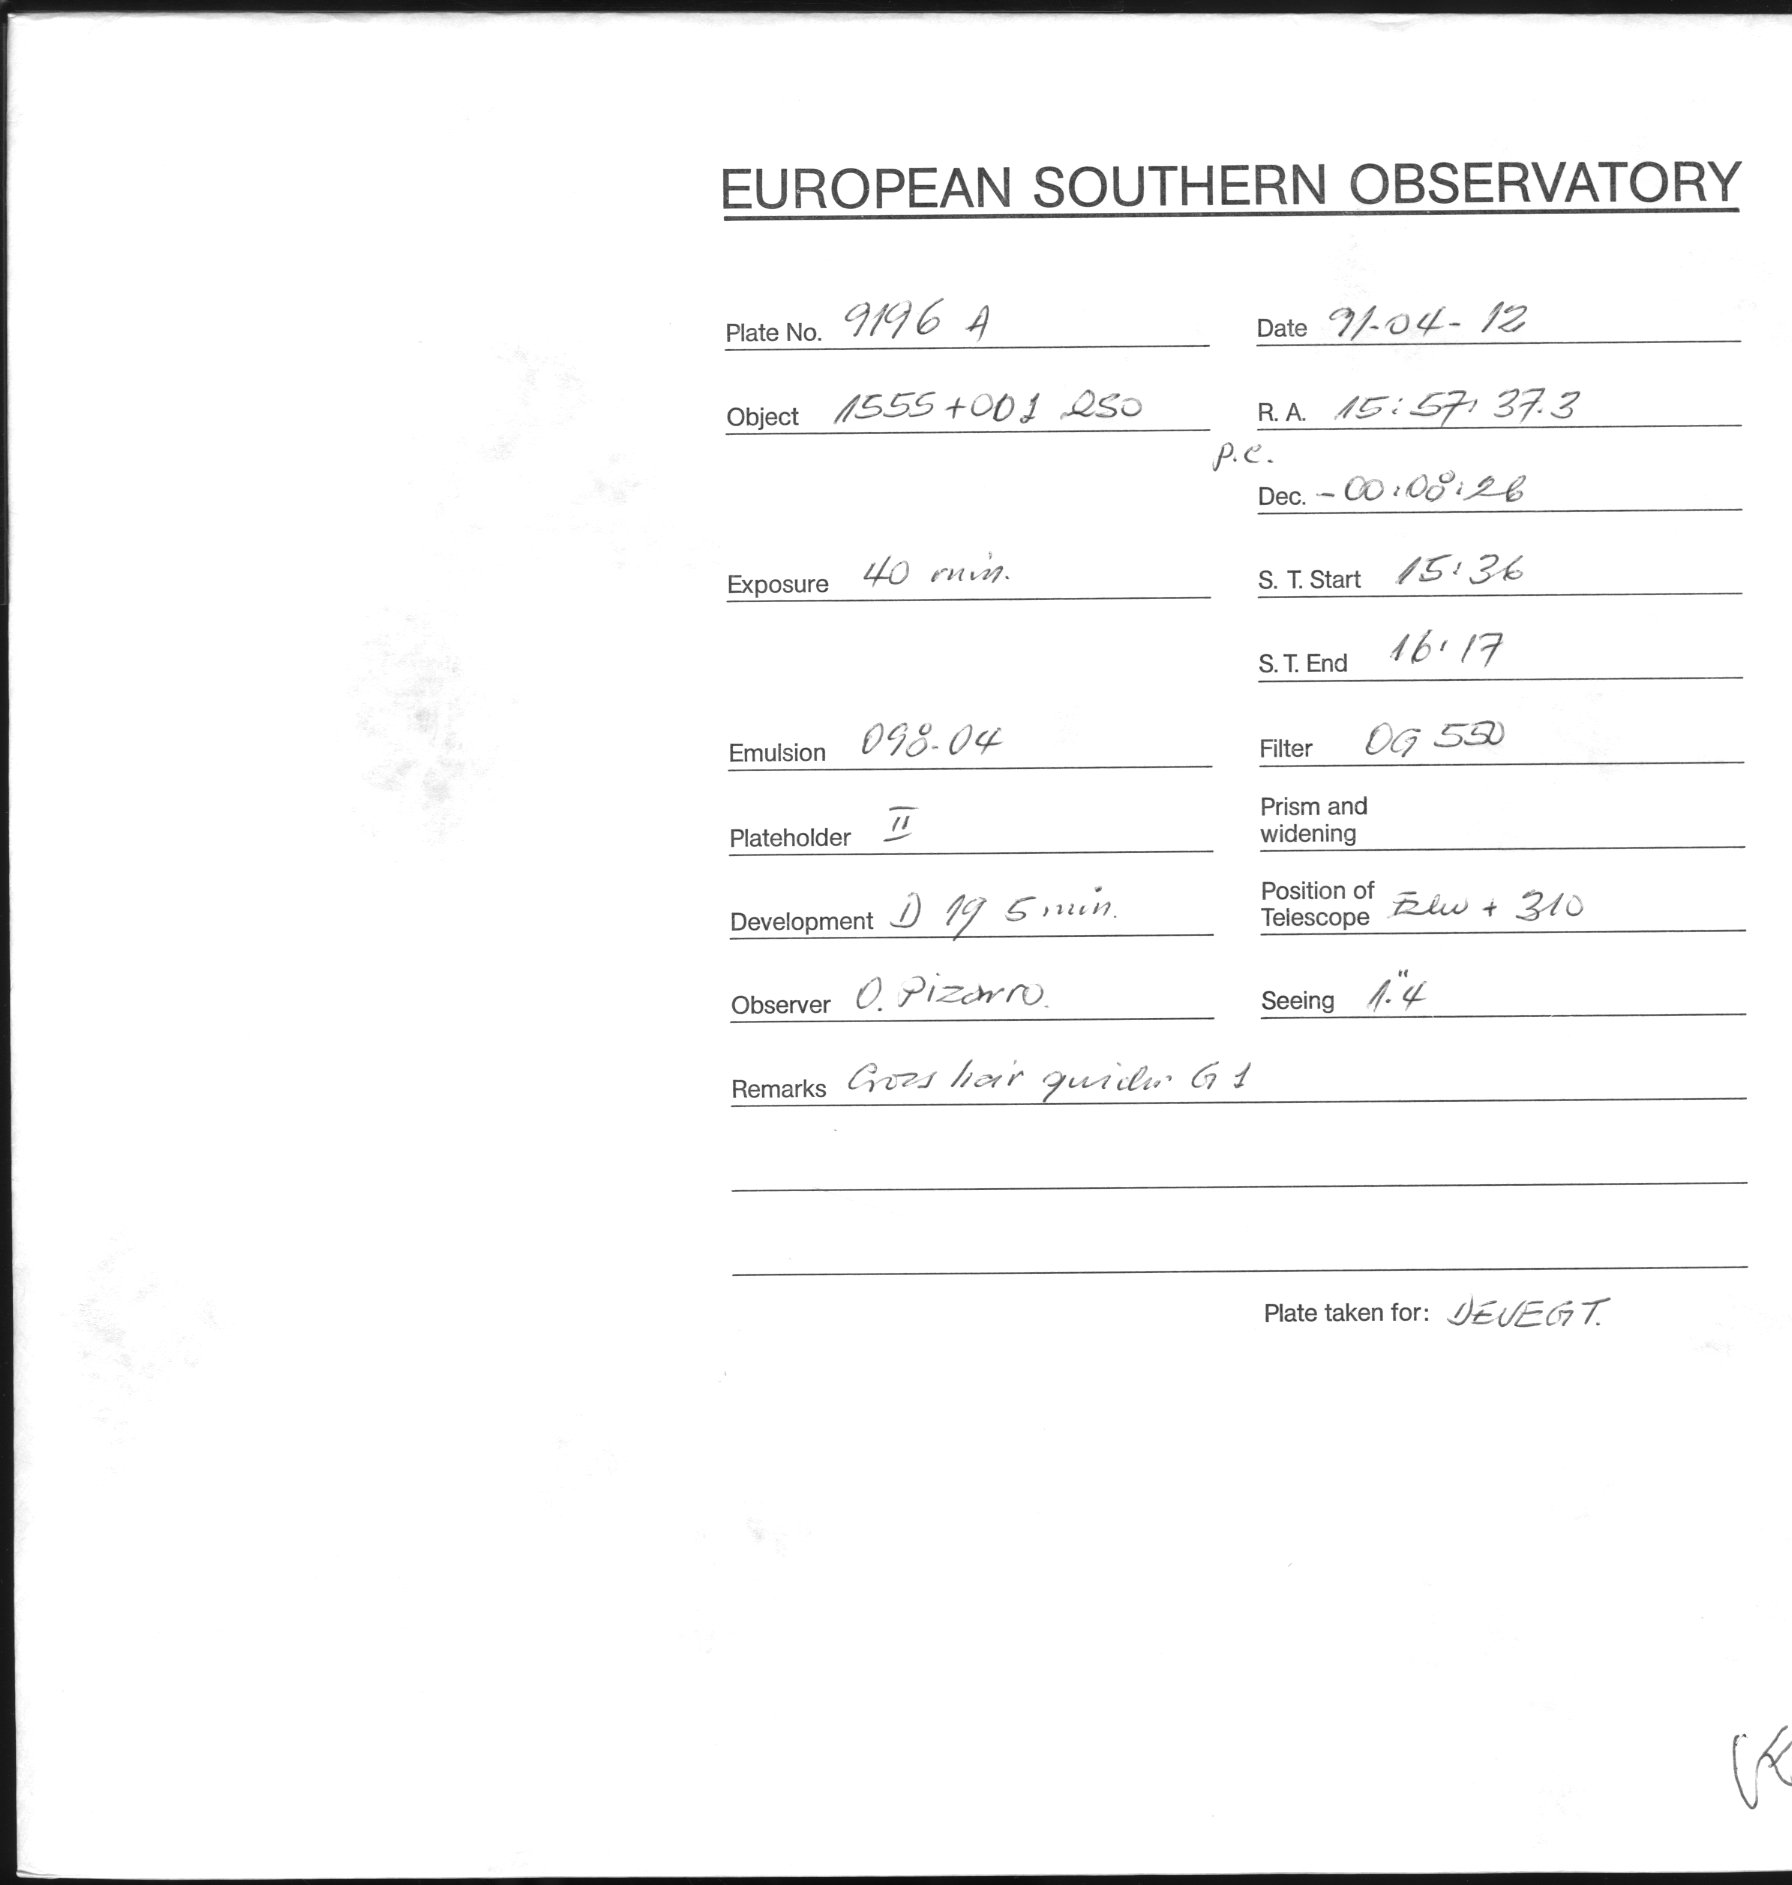 EUROPEAN SOUTHERN OBSERVATORY
Plate No. 9196 A Date 91-04-12
Object 1555+001 QSO R. A. 15:57:37.3
p.e.
Dec. -00:08:26
Exposure 40 min. S. T. Start 15:36
S. T. End 16:17
Emulsion 098-04 Filter OG 550
Plateholder II Prism and
widening
Development D 19 5 min. Position of
Telescope + 310
Observer O. Pizarro. Seeing 1."4
Remarks Cross hair guider G 1
Plate taken for: DEVEGT.